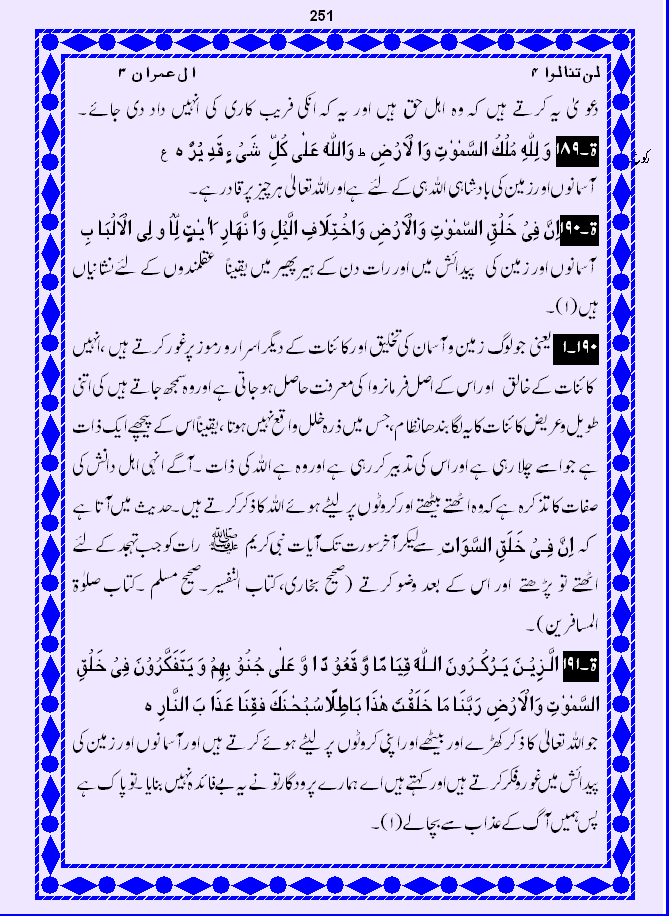 251
لن تنالوا ۴
ال عمران ۳
دعویٰ یہ کرتے ہیں کہ وہ اہل حق ہیں اور یہ کہ انکی فریب کاری کی انہیں داد دی جائے۔
ۃ۔۱۸۹ وَ لِلّٰہِ مُلْکُ السَّمٰوٰتِ وَ الْاَرْضِ ط وَاللّٰہُ عَلٰی کُلِّ شَیْ ءٍ قَدِ یْرُ ہ ع
رکوع
آسمانوں اور زمین کی بادشاہی اللہ ہی کے لئے ہے اور اللہ تعالیٰ ہر چیز پر قادر ہے۔
ۃ۔۱۹۰ اِنَّ فِیْ خَلْقِ السَّمٰوٰتِ وَالْاَرْضِ وَاخْتِلَافِ الَّیْلِ وَا لنَّھَارِ لَاٰ یٰتٍ لِّاُ و لِی الْاَلْبَا بِ
آسمانوں اور زمین کی پیدائش میں اور رات دن کے ہیر پھیر میں یقیناً عقلمندوں کے لئے نشانیاں
ہیں (۱)۔
۱۹۰۔۱ یعنی جو لوگ زمین و آسمان کی تخلیق اور کائنات کے دیگر اسرار و رموز پر غور کرتے ہیں، انہیں
کائنات کے خالق اور اس کے اصل فرمانروا کی معرفت حاصل ہو جاتی ہے اور وہ سمجھ جاتے ہیں کی اتنی
طویل و عریض کائنات کا یہ لگا بندھا نظام، جس میں ذرہ خلل واقع نہیں ہوتا، یقیناً اس کے پیچھے ایک ذات
ہے جو اسے چلا رہی ہے اور اس کی تدبیر کر رہی ہے اور وہ ہے اللہ کی ذات ۔ آگے انہی اہل دانش کی
صفات کا تذکرہ ہے کہ وہ اٹھتے بیٹھتے اور کروٹوں پر لیٹے ہوئے اللہ کا ذکر کرتے ہیں۔ حدیث میں آتا ہے
کہ اِنَّ فِیْ خَلَقِ السَّوَات ِسے لیکر آخر سورت تک آیات نبی کریم ﷺ رات کو جب تہجد کے لئے
اٹھتے تو پڑھتے اور اس کے بعد وضو کرتے (صحیح بخاری، کتاب التفسیر۔ صحیح مسلم ۔ کتاب صلوٰۃ
المسافرین)۔
ۃ۔۱۹۱ الَّذِیْنَ یَذْکُرُونَ اللّٰہَ قِیَا مًا وَّ قُعُوْ دًا وَّ عَلٰی جُنُوْ بِھِمْ وَ یَتَفَکَّرُوْنَ فِیْ خَلْقِ
السَّمٰوٰتِ وَالْاَرْضِ رَبَّنَا مَا خَلَقْتَ ھٰذَا بَاطِلًا سُبْحٰنَکَ فَقِنَا عَذَا بَ النَّارِ ہ
جو اللہ تعالیٰ کا ذکر کھڑے اور بیٹھے اور اپنی کروٹوں پر لیٹے ہوئے کرتے ہیں اور آسمانوں اور زمین کی
پیدائش میں غور و فکر کرتے ہیں اور کہتے ہیں اے ہمارے پرودگار تو نے یہ بے فائدہ نہیں بنایا۔ تو پاک ہے
پس ہمیں آگ کے عذاب سے بچا لے (۱)۔